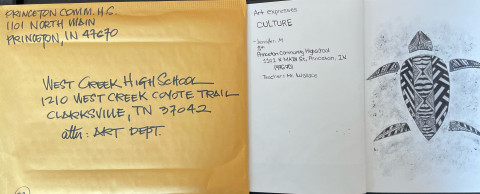 PRINCETON COMM. H.S.
1101 NORTH MAIN
PRINCETON, IN 47670
WEST CREEK HIGH SCHOOL
1210 WEST CREEK COYOTE TRAIL
CLARKSVILLE, TN 37042
attn: ART DEPT.
Art expresses
CULTURE
- Jennifer M.
Princeton Community Highschool
1101 N MAIN St, Princeton, IN
Teacher: Mr.